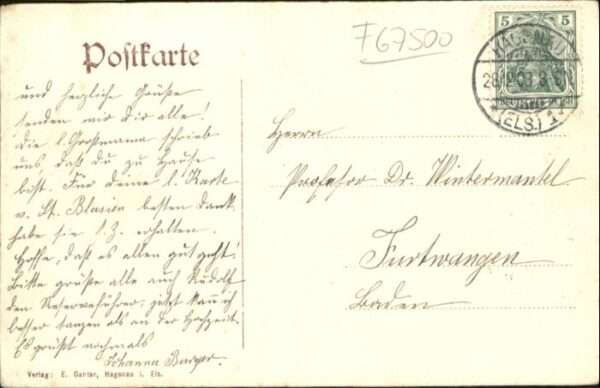 F67500
Postkarte
5 5
HAGENAU
(ELS.) 1
und herzliche Grüße
senden wir dir alle!
Die l. Großmama schrieb
uns, daß du zu Hause
bist. Für deine l. Karte
v. St. Blasien besten Dank
habe sie s. Z. erhalten.
Hoffe, daß es allen gut geht!
Bitte grüße alle auch Rudolf
den Reserveführer, jetzt kann ich
besser tanzen als an der Hochzeit.
Es grüßt nochmals
Johanna
Herrn
Professor Dr. Wintermantel
Furtwangen
Baden
Verlag: E. Ganter, Hagenau i. Els.